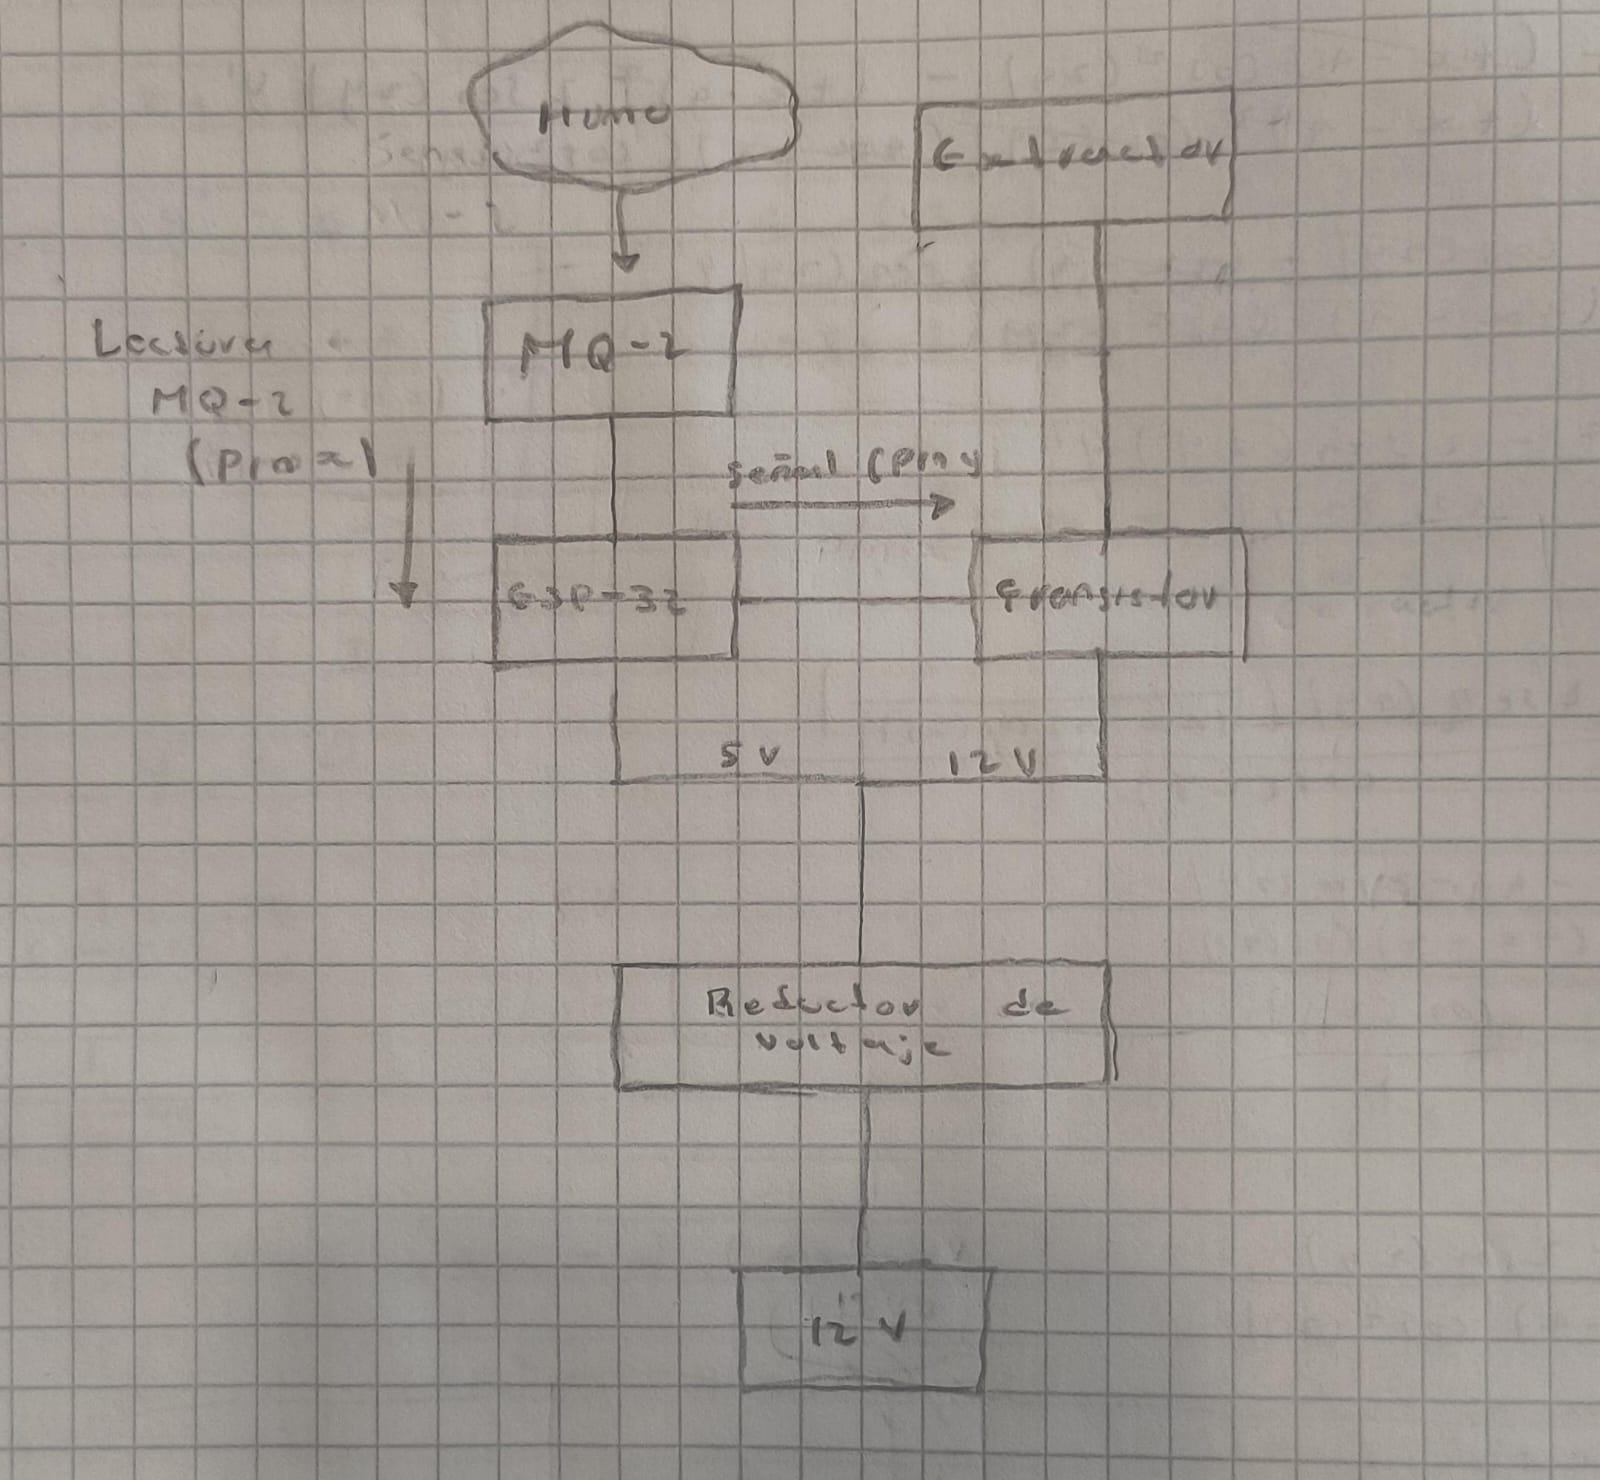 Humo
Extractor
MQ-2
Lectura
MQ-2
(Pin x)
señal (Pin y
ESP-32
transistor
5 V
12 V
Reductor de
voltaje
12 V